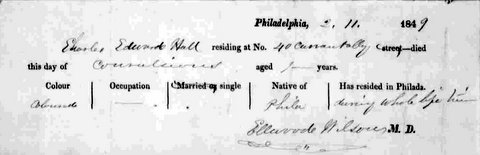 Philadelphia, 2. 11. 1849
Charles Edward Hall residing at No. 40 street—died
this day of Convulsions aged years.
Colour Occupation Married or single Native of Has resided in Philada.
— . Phila during whole life time
Ellwoode Wilson M. D.